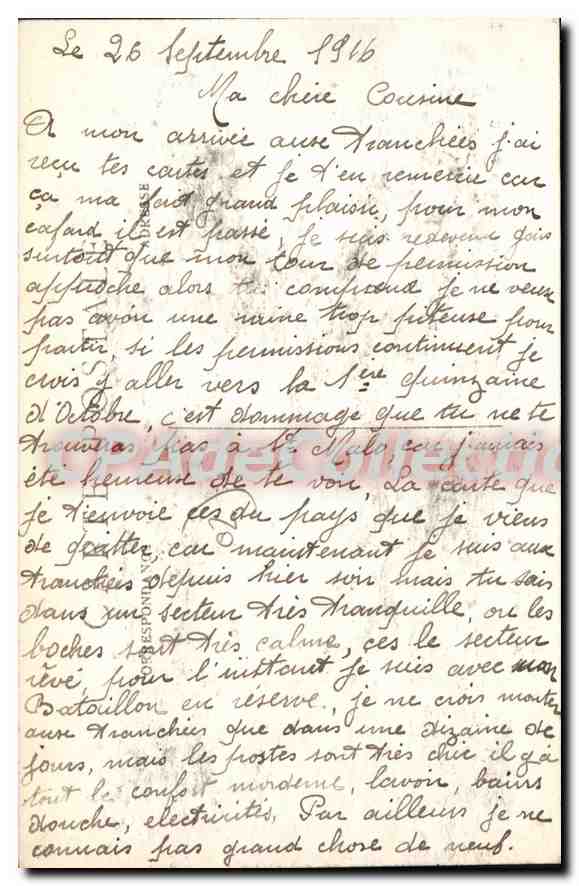 Le 26 Septembre 1916
Ma chère Cousine
A mon arrivée aux tranchées j'ai
reçu tes cartes et je t'en remercie car
ça ma fait grand plaisir, pour mon
cafard il est passé, je suis redevenu gais
surtout que mon tour de permission
approche alors tu comprend je ne veux
pas avoir une mine trop piteuse pour
partir, si les permissions continuent je
crois y aller vers la 1ère quinzaine
d'Octobre, c'est dommage que tu ne te
trouveras pas à St Malo car j'aurais
été heureux de te voir, La carte que
je t'envoie ces du pays que je viens
de quitter car maintenant je suis aux
tranchées depuis hier soir mais tu sais
dans un secteur très tranquille, ou les
boches sont très calme, ces le secteur
rêvé, pour l'instant je suis avec mon
Bataillon en réserve, je ne crois monter
aux tranchées que dans une dizaine de
jours, mais les postes sont très chic il y a
tout le confort morderne, lavon, bains
douche, electricités, Par ailleurs je ne
connais pas grand chose de neuf.
CARTE POSTALE
CORRESPONDANCE
ADRESSE
CPADeCollection